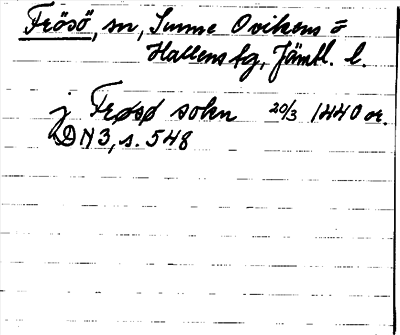 Frösö, sn, Sunne Ovikens o
Hallens tg, Jämtl. l.
j Frøsø sokn 20/3 1440 or.
DN 3, s. 548